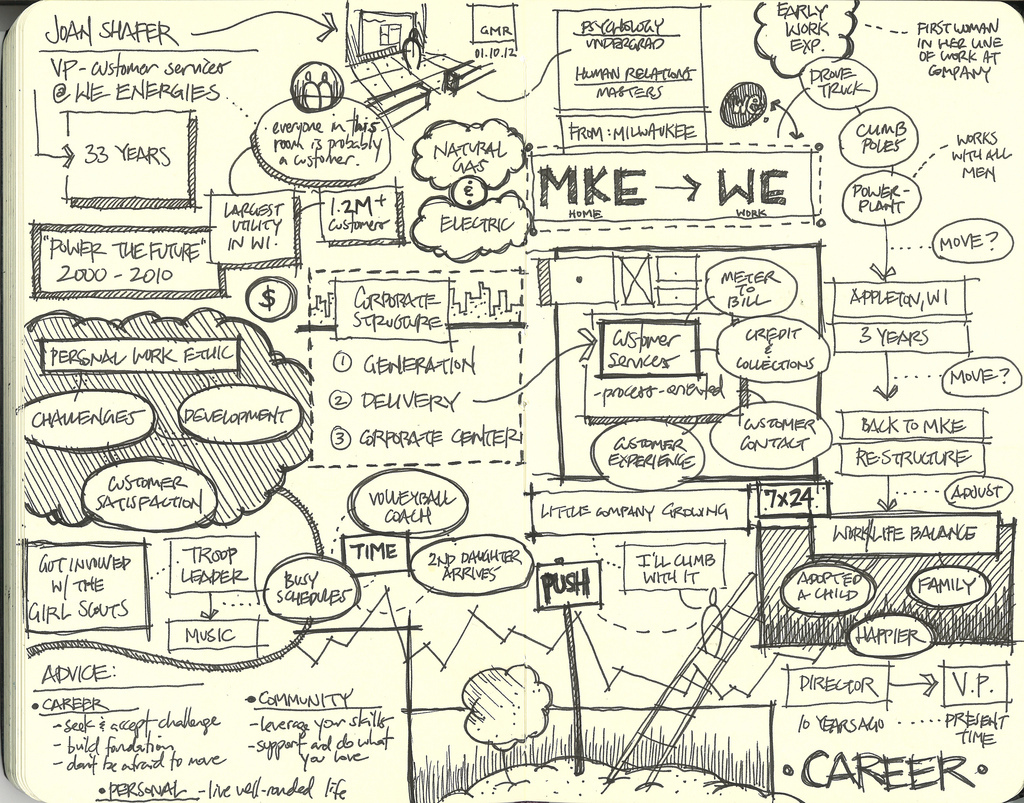 JOAN SHAFER
VP - customer services
@ WE ENERGIES
33 YEARS
everyone in this
room is probably
a customer.
LARGEST
UTILITY
IN WI.
1.2M+
customers
"POWER THE FUTURE"
2000 - 2010
$
GMR
01.10.12
NATURAL
GAS
&
ELECTRIC
PSYCHOLOGY
UNDERGRAD
HUMAN RELATIONS
MASTERS
FROM: MILWAUKEE
MKE → WE
HOME
WORK
EARLY
WORK
EXP.
FIRST WOMAN
IN HER LINE
OF WORK AT
COMPANY
DROVE
TRUCK
CLIMB
POLES
WORKS
WITH ALL
MEN
POWER-
PLANT
MOVE?
APPLETON, WI
3 YEARS
MOVE?
BACK TO MKE
RE-STRUCTURE
ADJUST
CORPORATE
STRUCTURE
1 GENERATION
2 DELIVERY
3 CORPORATE CENTER
METER
TO
BILL
CUSTOMER
SERVICES
CREDIT
&
COLLECTIONS
-process-oriented
CUSTOMER
CONTACT
CUSTOMER
EXPERIENCE
PERSONAL WORK ETHIC
CHALLENGES
DEVELOPMENT
CUSTOMER
SATISFACTION
GOT INVOLVED
W/ THE
GIRL SCOUTS
TROOP
LEADER
MUSIC
BUSY
SCHEDULES
TIME
VOLLEYBALL
COACH
2ND DAUGHTER
ARRIVES
LITTLE COMPANY GROWING
7x24
PUSH
I'LL CLIMB
WITH IT
WORK/LIFE BALANCE
ADOPTED
A CHILD
FAMILY
HAPPIER
DIRECTOR → V.P.
10 YEARS AGO ...... PRESENT
TIME
• CAREER •
ADVICE:
• CAREER
- seek & accept challenge
- build foundation
- don't be afraid to move
• COMMUNITY
- leverage your skills
- support and do what
you love
• PERSONAL - live well-rounded life